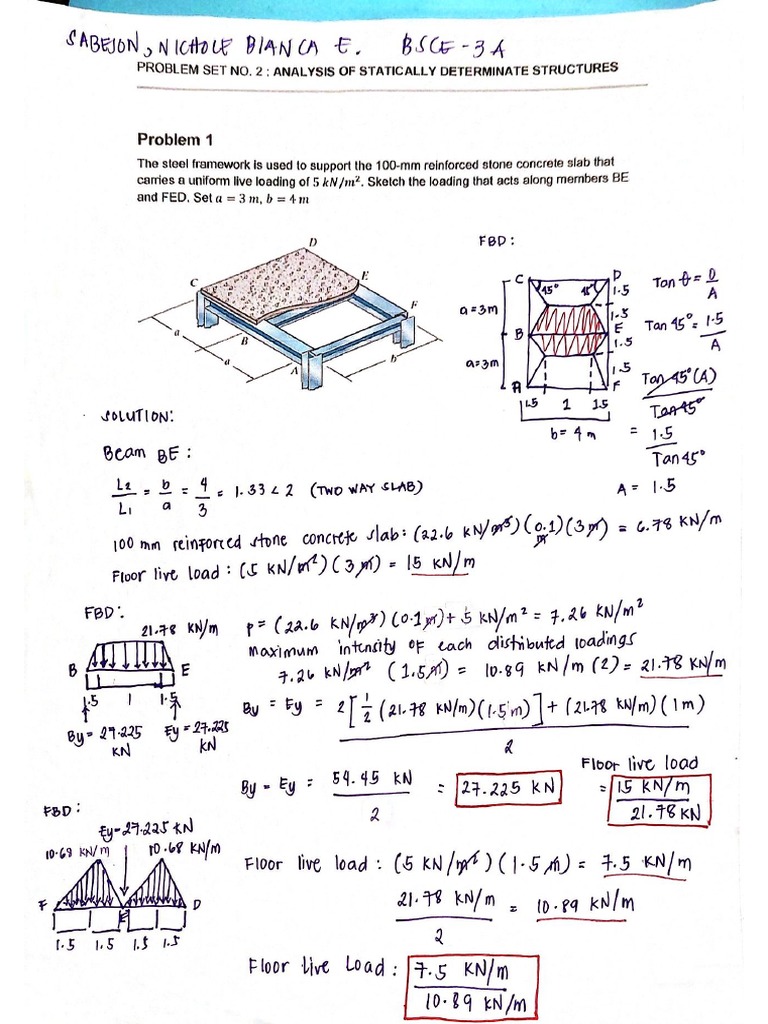 SABEJON, NICHOLE BIANCA E. BSCE-3A
PROBLEM SET NO. 2 : ANALYSIS OF STATICALLY DETERMINATE STRUCTURES
Problem 1
The steel framework is used to support the 100-mm reinforced stone concrete slab that
carries a uniform live loading of 5 kN/m². Sketch the loading that acts along members BE
and FED. Set a = 3 m, b = 4 m
D
C
E
F
B
A
a
a
b
FBD:
C D
45° 45°
1.5
a=3m
1.5
B E
1.5
a=3m
1.5
A F
1.5 1 1.5
b= 4 m
Tan θ = O/A
Tan 45° = 1.5/A
Tan 45° (A)
Tan 45°
= 1.5
Tan 45°
A = 1.5
SOLUTION:
Beam BE:
L2/L1 = b/a = 4/3 = 1.33 < 2 (TWO WAY SLAB)
100 mm reinforced stone concrete slab: (22.6 KN/m³)(0.1 m)(3m) = 6.78 KN/m
Floor live load: (5 KN/m²)(3m) = 15 KN/m
FBD:
21.78 KN/m
B E
1.5 1 1.5
By= 27.225 KN
Ey= 27.225 KN
P= (22.6 KN/m³)(0.1m)+ 5 KN/m² = 7.26 KN/m²
maximum intensity of each distributed loadings
7.26 KN/m² (1.5m) = 10.89 KN/m (2) = 21.78 KN/m
By = Ey = 2[1/2 (21.78 KN/m)(1.5m)] + (21.78 KN/m)(1m)
2
By = Ey = 54.45 KN / 2 = 27.225 KN
Floor live load
= 15 KN/m
21.78 KN
FBD:
Ey=27.225 KN
10.68 KN/m 10.68 KN/m
F E D
1.5 1.5 1.5 1.5
Floor live load : (5 KN/m²)(1.5m) = 7.5 KN/m
21.78 KN/m / 2 = 10.89 KN/m
Floor live Load : 7.5 KN/m
10.89 KN/m